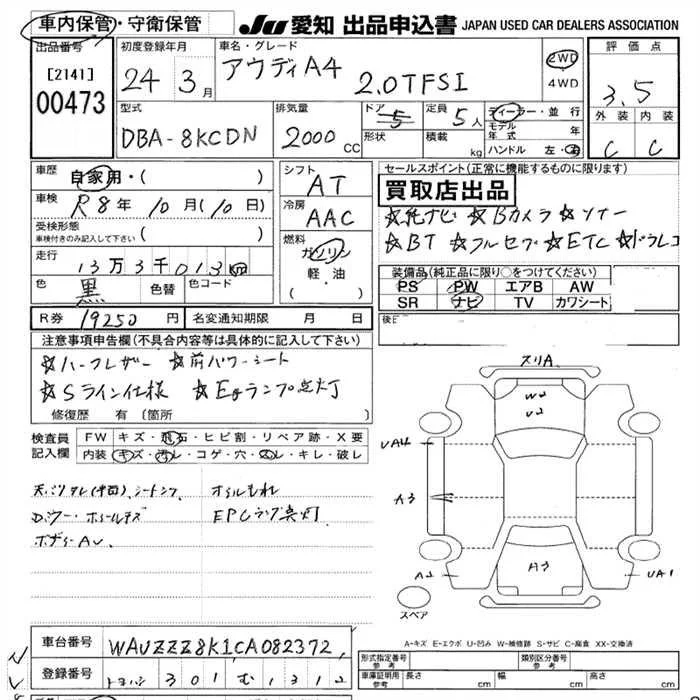 車内保管・守衛保管 JU 愛知 出品申込書 JAPAN USED CAR DEALERS ASSOCIATION
出品番号 [2141] 00473
初度登録年月 24年 3月
車名・グレード アウディA4 2.0TFSI
2WD
4WD
評価点 3.5
外装 C 内装 C
型式 DBA-8KCDN
排気量 2000cc
ドア 5 形状
定員 5人 積載 kg
ディーラー・並行
モデル年式 年
ハンドル 左・右
車歴 自家用・( )
車検 R8年 10月(10日)
受検形態 車検付きのみ記入して下さい ( )
走行 13万3千013
色 黒 色替 色コード
シフト AT
冷房 AAC
燃料 ガソリン
軽・油
( ・ )
セールスポイント(正常に機能するものに限ります)
買取店出品
☆純ナビ ☆Bカメラ ☆ソナー
☆BT ☆フルセグ ☆ETC ☆ドラレコ
装備品(純正品に限り○をつけてください)
PS PW エアB AW
SR ナビ TV カワシート
R券 19250円 名変通知期限 月 日
後
注意事項申告欄(不具合内容等は具体的に記入して下さい)
☆ハーフレザー ☆前パワーシート
☆Sライン仕様 ☆Egランプ点灯
修復歴 有 (箇所 )
検査員記入欄 FW キズ・飛石・ヒビ割・リペア跡・X要
内装 キズ・汚レ・コゲ・穴・スレ・キレ・破レ
オイルもれ
EPCランプ点灯
スリA
W2
U2
UA4
A3
A3
A2
UA1
スペア
A-キズ E-エクボ U-凹み W-補修跡 S-サビ C-腐食 XX-交換済
車台番号 WAUZZZ8K1CA082372
登録番号 301 む 1312
形式指定番号 参考 類別区分番号 参考
車庫証明用 参考 長さ cm 幅 cm 高さ cm